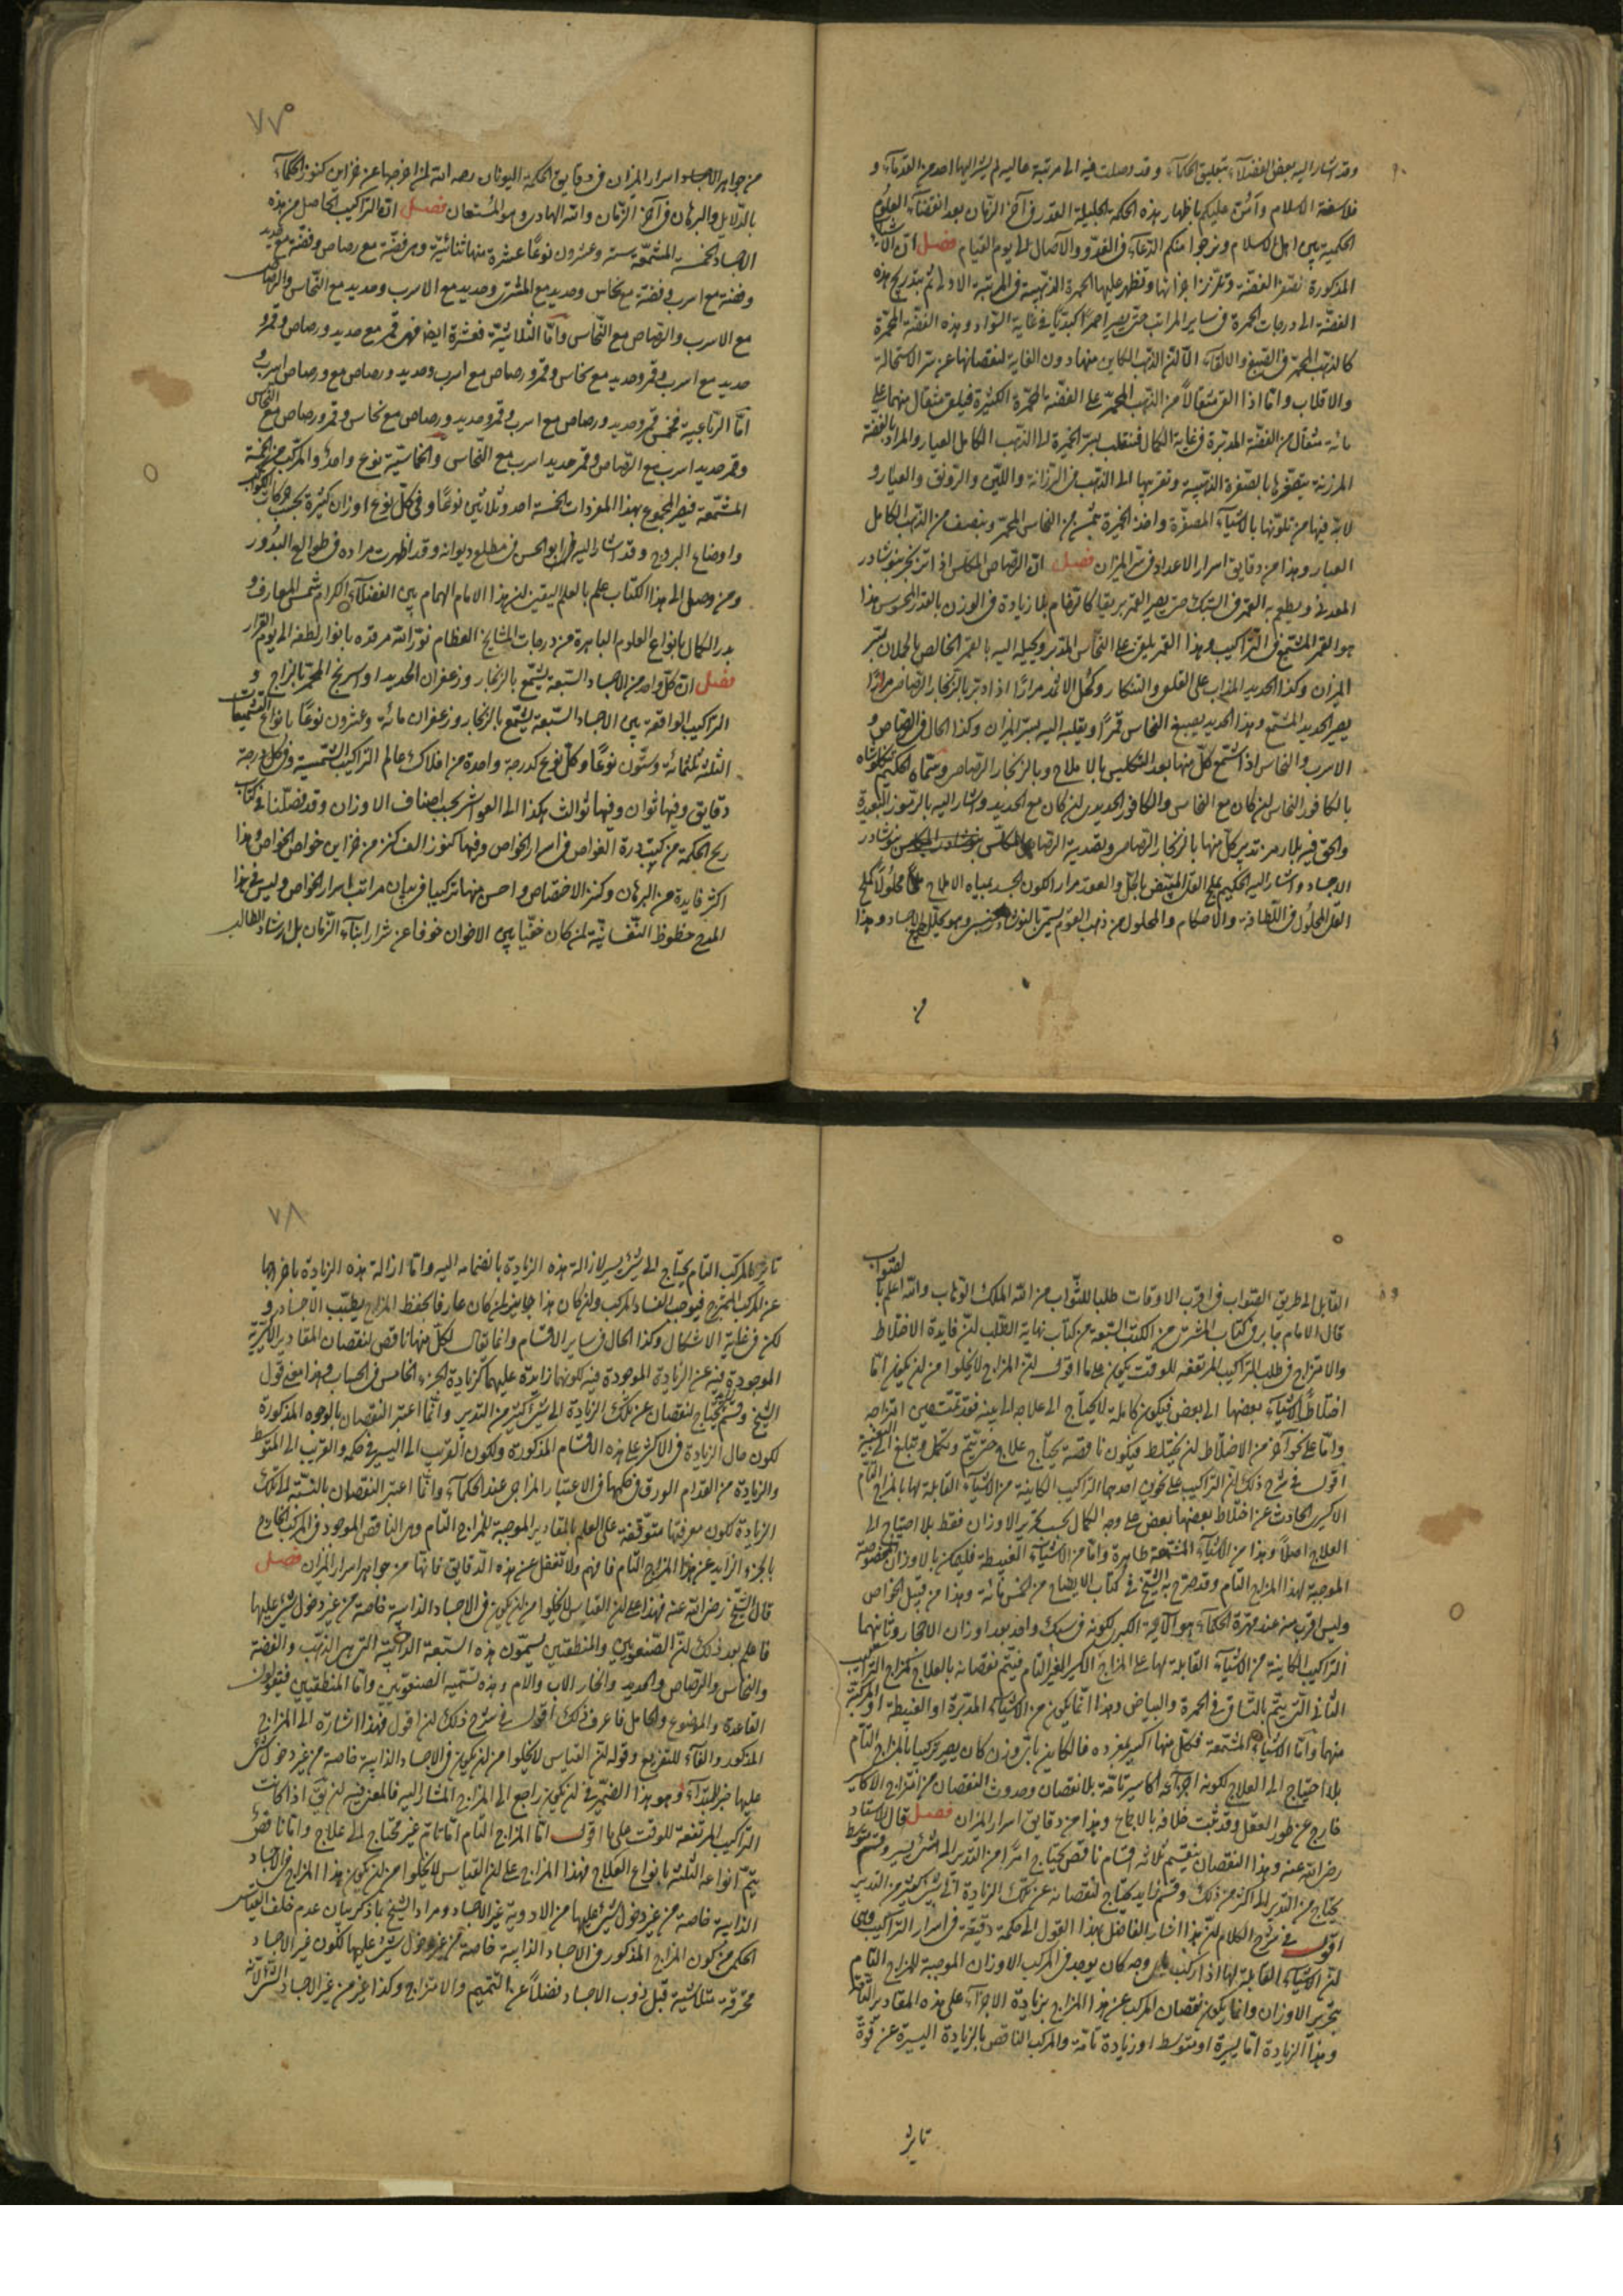 وقد اشار اليه بعض الفضلاء بتعليق الحكماء وقد وصلت فيه الى مرتبة عالية لم يشر اليها احد من القدماء و
فلاسفة الاسلام وآمنن عليكم باظهار هذه الحكمة الجليلة القدر فى آخر الزمان بعد انقضاء العلوم
الحكمية بين اهل الاسلام ونرجوا منكم الدعاء فى الغدو والآصال الى يوم القيام فصل ان الاشياء
المذكورة تصفر الفضة وتلزز اجزائها وتظهر عليها الحمرة الذهبية فى المرتبة الاولى ثم بتدريج هذه
الفضة الى درجات الحمرة فى ساير المراتب حتى يصير احمرا كبديا فى غاية السواد وهذه الفضة المحمرة
كالذهب المحمر فى الصبغ والالقاء الا ان الذهب الكاين منها دون الغاية لنقصانها عن سر الاستحالة
والانقلاب واما اذا القى مثقالا من الذهب المحمر على الفضة المحمرة الكثيرة فيلقى مثقال منها على
مائة مثقال من الفضة المدبرة فى غاية الكمال فتنقلب بسر الخميرة الى الذهب الكامل العيار والمراد بالفضة
المرزنة بتصفيرها بالصفرة الذهبية وتقربها الى الذهب فى الرزانة واللين والرونق والعيار و
لا بد فيها من تلونها بالاشياء المصفرة واخذ الخميرة بخمس من النحاس المحمر وبنصف من الذهب الكامل
العيار وهذا من دقايق اسرار الاعداد فى سر الميزان فصل ان الرصاص المكلس اذا اتزنجر بنوشادر
المعدنى ويطعم به القمر فى السبك حتى يصير القمر بريقا كالرخام بلا زيادة فى الوزن بالقدر المحسوس هذا
هو القمر المشمع فى التراكيب وهذا القمر يلقى على النحاس المدبر ويحيله اليه بالقمر الخالص بالحلان بسر
الميزان وكذا الحديد المذاب على القلع والتنكار وكحل الاثمد مرارا اذا دبر بالزنجار الرصاص مرارا
يصير الحديد المشمع وهذا الحديد يصبغ النحاس قمرا ويقلبه اليه بسر الميزان وكذا الحال فى الرصاص و
الاسرب والنحاس اذا شمع كل منها بعد التكليس بالاملاح وبالزنجار الرصاص وسماه الحكيم
بالكافور النحاس ان كان مع النحاس والكافور الحديدى ان كان مع الحديد واشار اليه بالرموز البعيدة
والحق فيه بلا رمز تدبير كل منها بالزنجار الرصاص وتصدية الرصاص المكلس بنوشادر
الاجساد واشار اليه الحكيم على القلى المبيض بالخل والعقد مرارا لكون الجسد بمياه الاملاح محلولا كملح
القلى المحلول فى اللطافة والاحكام والمحلول من ذهب القوم يسمى بالنوشادر وهو يحلل الاجساد وهذا
من
٧٧
من جواهر الاجساد اسرار الميزان فى دقايق الحكمة اليونان رحم الله لمن اخرجها عن خزاين كنوز الحكماء
بالدلايل والبرهان فى آخر الزمان والله الهادى وهو المستعان فصل ان التراكيب الحاصل من هذه
الاجساد الخمسة المشمعة ستة وعشرون نوعا عشرة منها ثنائية وهى فضة مع رصاص وفضة مع حديد
وفضة مع اسرب وفضة مع نحاس وحديد مع المشترى وحديد مع الاسرب وحديد مع النحاس والرصاص
مع الاسرب والرصاص مع النحاس واما الثلاثية فعشرة ايضا فهى قمر مع حديد ورصاص وقمر و
حديد مع اسرب وقمر وحديد مع نحاس وقمر ورصاص مع اسرب وحديد ورصاص مع ورصاص اسرب و
اما الرباعية فخمس قمر وحديد ورصاص مع اسرب وقمر وحديد ورصاص مع نحاس وقمر ورصاص مع النحاس
وقمر حديد اسرب مع الرصاص وقمر حديد اسرب مع النحاس والخماسية نوع واحد والمركب من الخمسة
المشمعة فيصير المجموع بهذا المفردات الخمسة احد وثلاثين نوعا وفى كل نوع اوزان كثيرة بحسب حركات الكواكب
واوضاع البروج وقد اشار اليه ابو الحسن فى مطلع ديوانه وقد اظهرت مراده فى طوالع البدور
ومن وصل الى هذا الكتاب علم بالعلم اليقين ان هذا الامام الهمام بين الفضلاء الكرام شمس المعارف و
بدر الكمال بانواع العلوم الباهرة من درجات المشايخ العظام نور الله مرقده بانوار لطفه الى يوم القرار
فصل ان كل واحد من الاجساد السبعة يشمع بالزنجار وزعفران الحديد او اسرنج المحمر بالزاج و
التراكيب الواقعة بين الاجساد السبعة يشمع بالزنجار وزعفران مائة وعشرون نوعا بانواع التشميعات
الثلثة ثلثمائة وستون نوعا وكل نوع كدرجة واحدة من افلاك عالم التراكيب الشمسية وفى كل درجة
دقايق وفيها ثوان وفيها ثوالث هكذا الى العواشر بحسب اصناف الاوزان وقد فصلنا فى كتاب
ريح الحكمة من كتب درة الغواص فى اسرار الخواص وفيها كنوز الف كنز من خزاين خواص الخواص وهذا
اكثر فايدة من البرهان وكنز الاختصاص واحسن منها تركيبا فى بيان مراتب اسرار الخواص وليس فى هذا
المدح حظوظ النفسانية لمن كان خفيا بين الاخوان خوفا عن شرار ابناء الزمان بل ارشاد الطالب
القابل الى طريق الصواب فى اقرب الاوقات طلبا للثواب من الله الملك الوهاب والله اعلم بالصواب
قال الامام جابر فى كتاب المشترى من الكتب السبعة من كتاب نهاية الطلب ان فايدة الاختلاط
والامتزاج فى طلب التراكيب المرتفعة للوقت يكون على ما اقول ان المزاج لا يخلوا من ان يكون اما
اختلاط الاشياء بعضها الى بعض فيكون كاملة لا يحتاج الى علاج البتة فقد تمت حين امتزاجه
واما على نحو آخر من الاختلاط ان يختلط فيكون ناقصة يحتاج علاج حتى يتم ويكمل ويبلغ الى البغية
اقول فى شرح ذلك ان التراكيب على نحوين احدهما التراكيب الكاينة من الاشياء القابلة لها بالمزاج التام
الاكبر الحادث عن اختلاط بعضها ببعض على وجه الكمال بحسب تحرير الاوزان فقط بلا احتياج الى
العلاج اصلا وهذا من الاشياء المشمعة طاهرة واما من الاشياء الغبيطة فليمكن بالاوزان المخصوصة
الموجبة لهذا المزاج التام وقد صرح به الشيخ فى كتاب الايضاح من الخمس مائة وهذا من قبيل الخواص
وليس اقرب منه عند مهرة الحكماء هو الآية الكبرى لكونه فى سبك واحد بعد اوزان الاحجار وثانيهما
التراكيب الكاينة من الاشياء القابلة لها على المزاج الكبير الغير التام فيتم نقصانه بالعلاج كمزاج التراكيب
الثانى التى يتم بالتساقى فى الحمرة والبياض وهذا انما يكون من الاشياء المدبرة او الغبيطة او المركبة
منهما واما الاشياء المشمعة فكل منها اكسير بمفرده فالكاين باى وزن كان يصير تركيبا بالمزاج التام
بلا احتياج الى العلاج لكونه اجزائه اكاسير تامة بلا نقصان وحدوث النقصان من امتزاج الاكاسير
خارج عن طور العقل وقد ثبت خلافه بالاجماع وهذا من دقايق اسرار الميزان فصل قال الاستاد
رضى الله عنه وهذا النقصان ينقسم ثلاثة اقسام ناقص يحتاج امرا من التدبير الى شئ يسير وقسم متوسط
يحتاج من التدبير الى اكثر من ذلك وقسم زايد يحتاج لنقصانه عن تلك الزيادة الى شئ كثير من التدبير
اقول فى شرح الكلام ان هذا اشار الفاضل بهذا القول الى حكمة دقيقة فى اسرار التراكيب وهى
ان الاشياء القابلة لها اذا ركبت باى وجه كان يوجد فى المركب الاوزان الموجبة للمزاج التام
بتحرير الاوزان وانما يكون نقصان المركب عن هذا المزاج بزيادة الاجزاء على هذه المقادير التامة
وهذا الزيادة اما يسيرة او متوسط او زيادة تامة والمركب الناقص بالزيادة اليسيرة عن قوة
تاثير
٧٨
تاثير المركب التام يحتاج الى شئ يسير لازالة هذه الزيادة بانضمامه اليه واما ازالة هذه الزيادة باخراجها
عن المركب الممتزج فيوجب الفساد المركب وان كان هذا جايز ان كان عارفا بحفظ المزاج بطبب الاجساد و
لكن فى غاية الاشكال وكذا الحال فى ساير الاقسام وانما يقال لكل منها ناقص لنقصان المقادير الاكسيرية
الموجودة فيه عن الزيادة الموجودة فيه لكونها زايدة عليها كزيادة الجزء الخامس فى الحساب وهذا معنى قول
الشيخ وقسم يحتاج لنقصان عن تلك الزيادة الى شئ كثير من التدبير وانما اعتبر النقصان بالوجوه المذكورة
لكون حال الزيادة فى الاكثر على هذه الاقسام المذكورة ولكون القريب الى اليسير فى حكمه والقريب الى المتوسط
والزيادة من اقدام الورق فى حكمها فى الاعتبار المزاجى عند الحكماء وانما اعتبر النقصان بالنسبة الى تلك
الزيادة لكون معرفتها متوقفة على العلم بالمقادير الموجبة للمزاج التام وهى الناقص الموجود فى المركب الخارج
بالجزء الزايد عن هذا المزاج التام فافهم ولا تغفل عن هذه الدقايق فانها من جواهر اسرار الميزان فصل
قال الشيخ رضى الله عنه فهذا على ان القياس لا يخلوا من ان يكون فى الاجساد الذايبة خاصة من غير دخول شئ عليها
فاعلم بعد ذلك ان الصنعويين والمنطقيين يسمون هذه السبعة الذايبة التى هى الذهب والفضة
والنحاس والرصاص والحديد والخار الاب والام وهذه تسمية الصنعويين واما المنطقيين فيقولون
القاعدة والموضوع والحامل فاعرف ذلك اقول فى شرح ذلك ان اقول فهذا اشارة الى المزاج
المذكور والفاء للتفريع وقوله ان القياس لا يخلوا من ان يكون فى الاجساد الذايبة خاصة من غير دخول شئ
عليها خبر المبتداء وهو هذا الضمير فى ان يكون راجع الى المزاج المشار اليه فالمعنى فيه ان نقى اذا كانت
التراكيب المرتفعة للوقت على ما اقول اما المزاج التام اما تام غير محتاج الى علاج واما ناقص
يتم انواعه الثلثة بانواع العلاج فهذا المزاج على ان القياس لا يخلوا من ان يكون هذا المزاج فى الاجساد
الذايبة خاصة من غير دخول شئ عليها من الادوية غير الاجساد ومراد الشيخ بما ذكر بيان عدم خلف القياس
الحكمى من كون المزاج المذكور فى الاجساد الذايبة خاصة من غير دخول شئ عليها لكون غير الاجساد
محترقة متلاشية قبل ذوب الاجساد فضلا عن التتميم والامتزاج وكذا غير من غير الاجساد